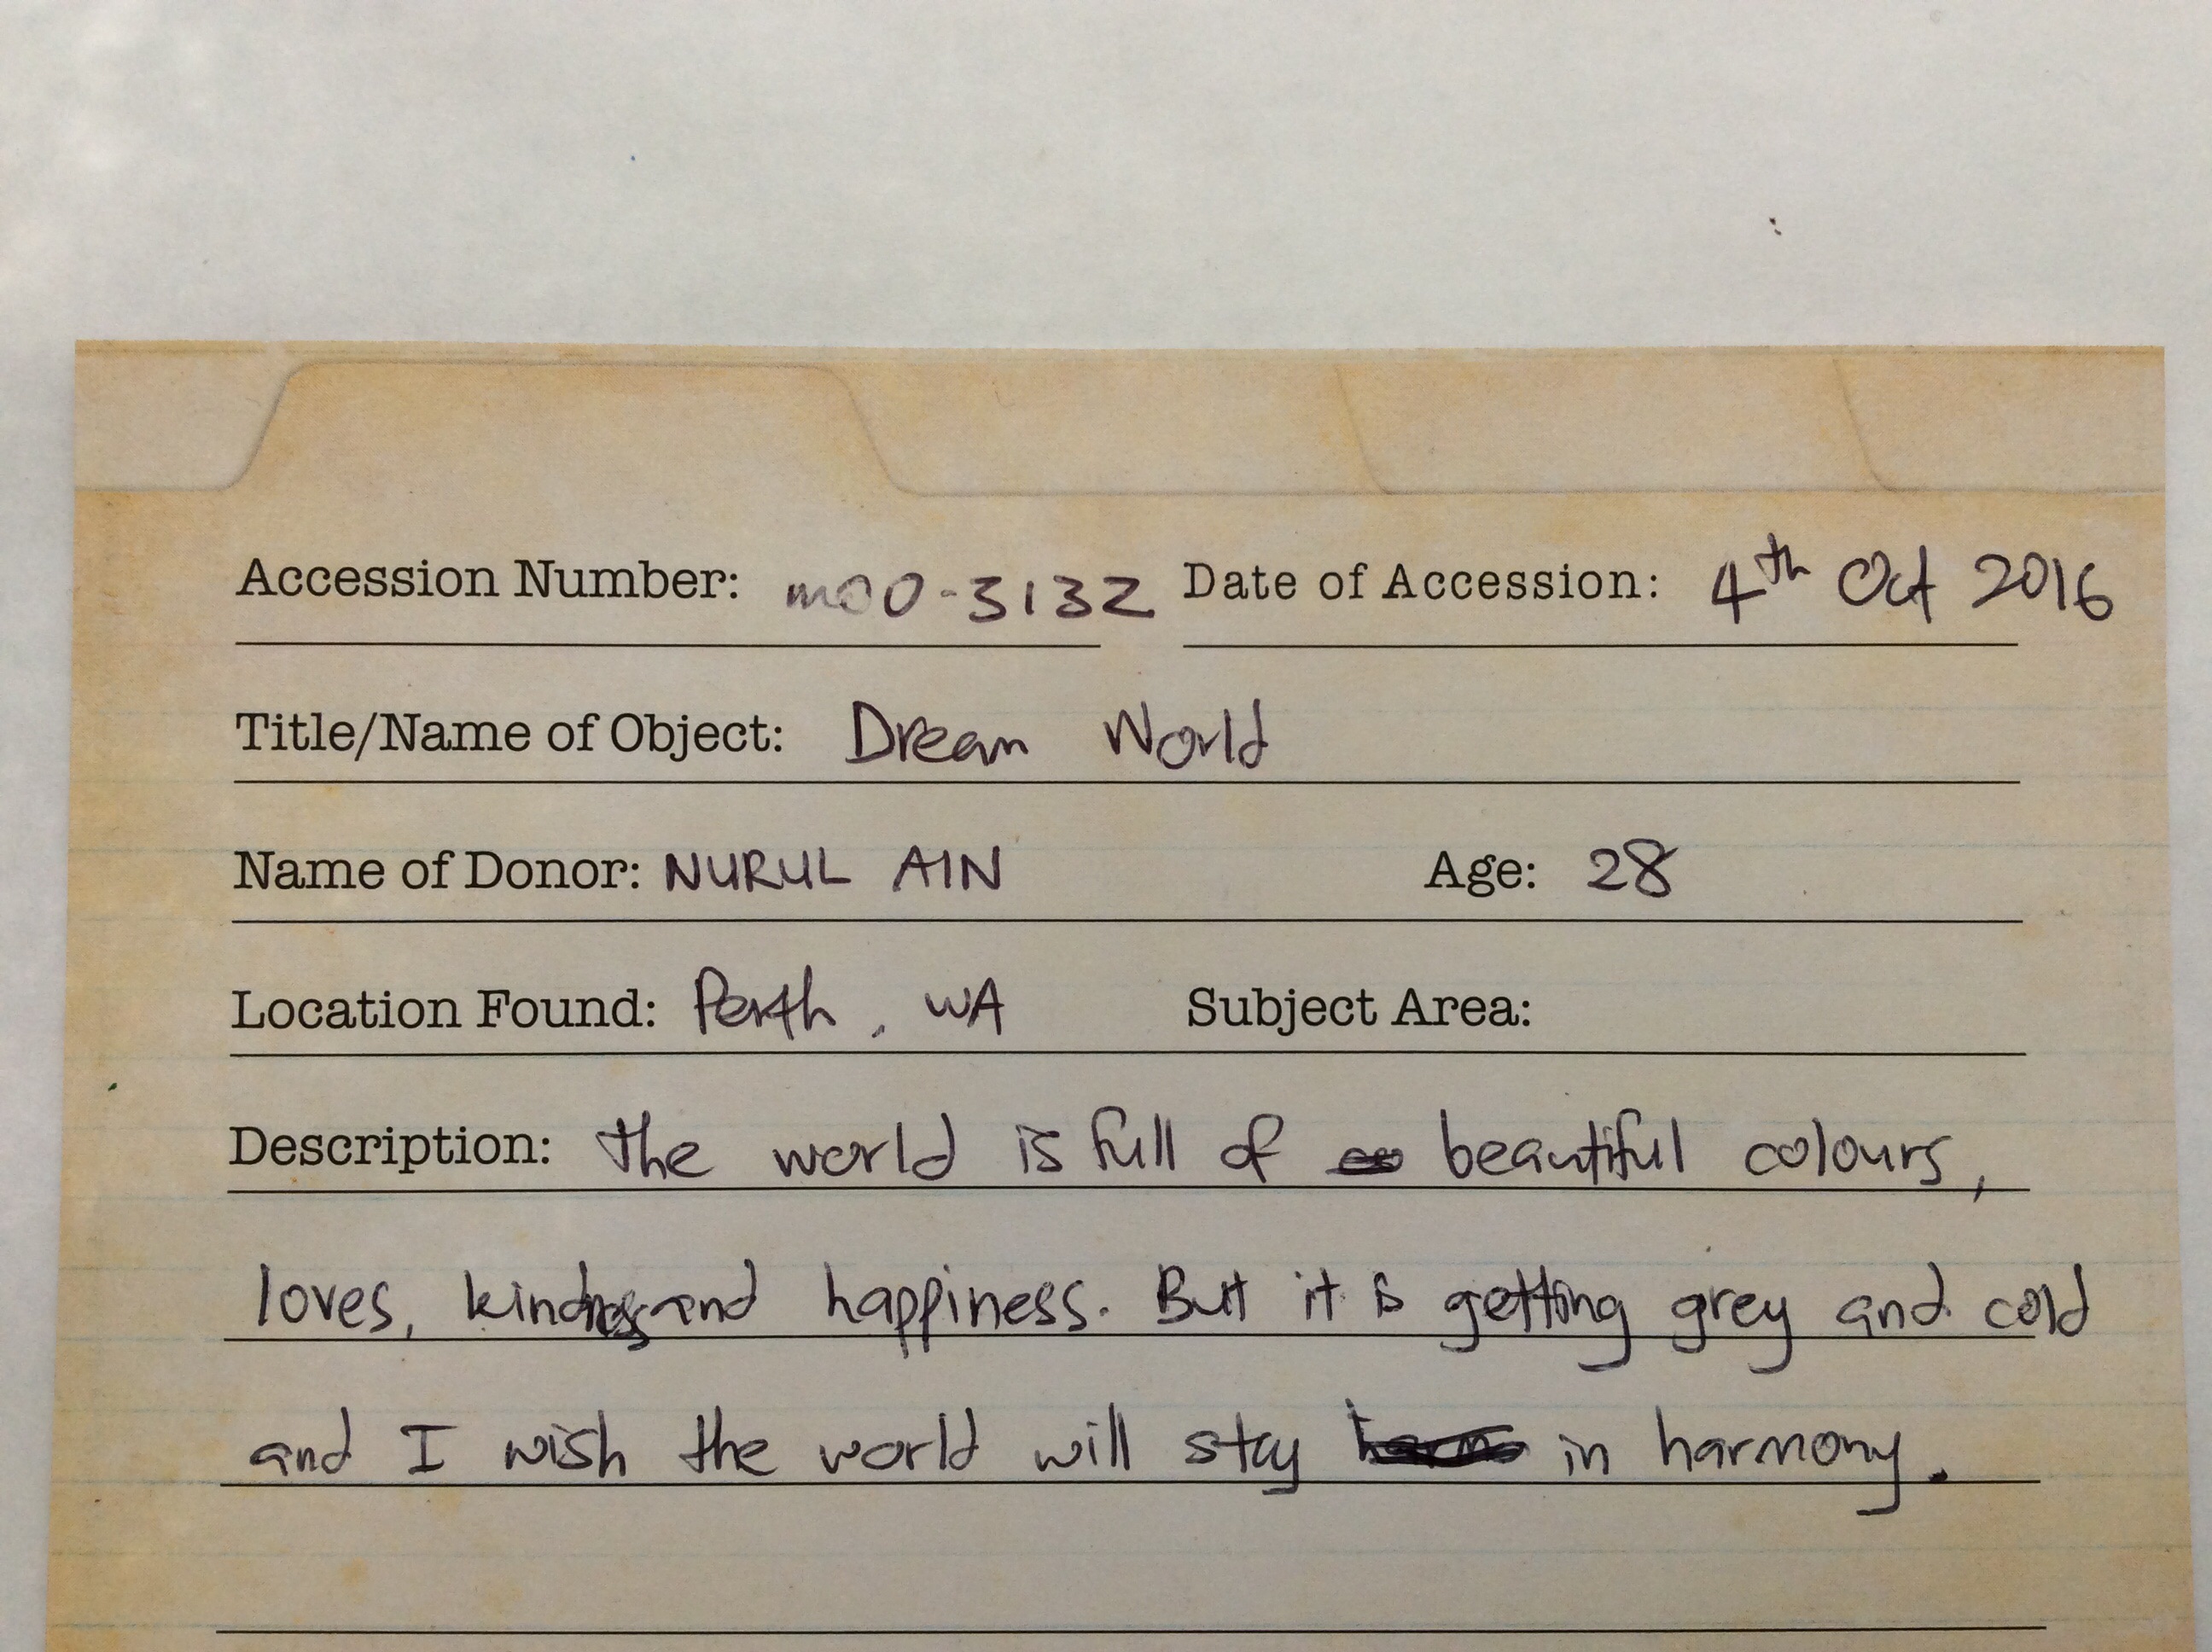 Accession Number: m00-3132 Date of Accession: 4th Oct 2016
Title/Name of Object: Dream World
Name of Donor: NURUL AIN Age: 28
Location Found: Perth, WA Subject Area:
Description: the world is full of beautiful colours,
loves, kindness and happiness. But it is getting grey and cold
and I wish the world will stay in harmony.